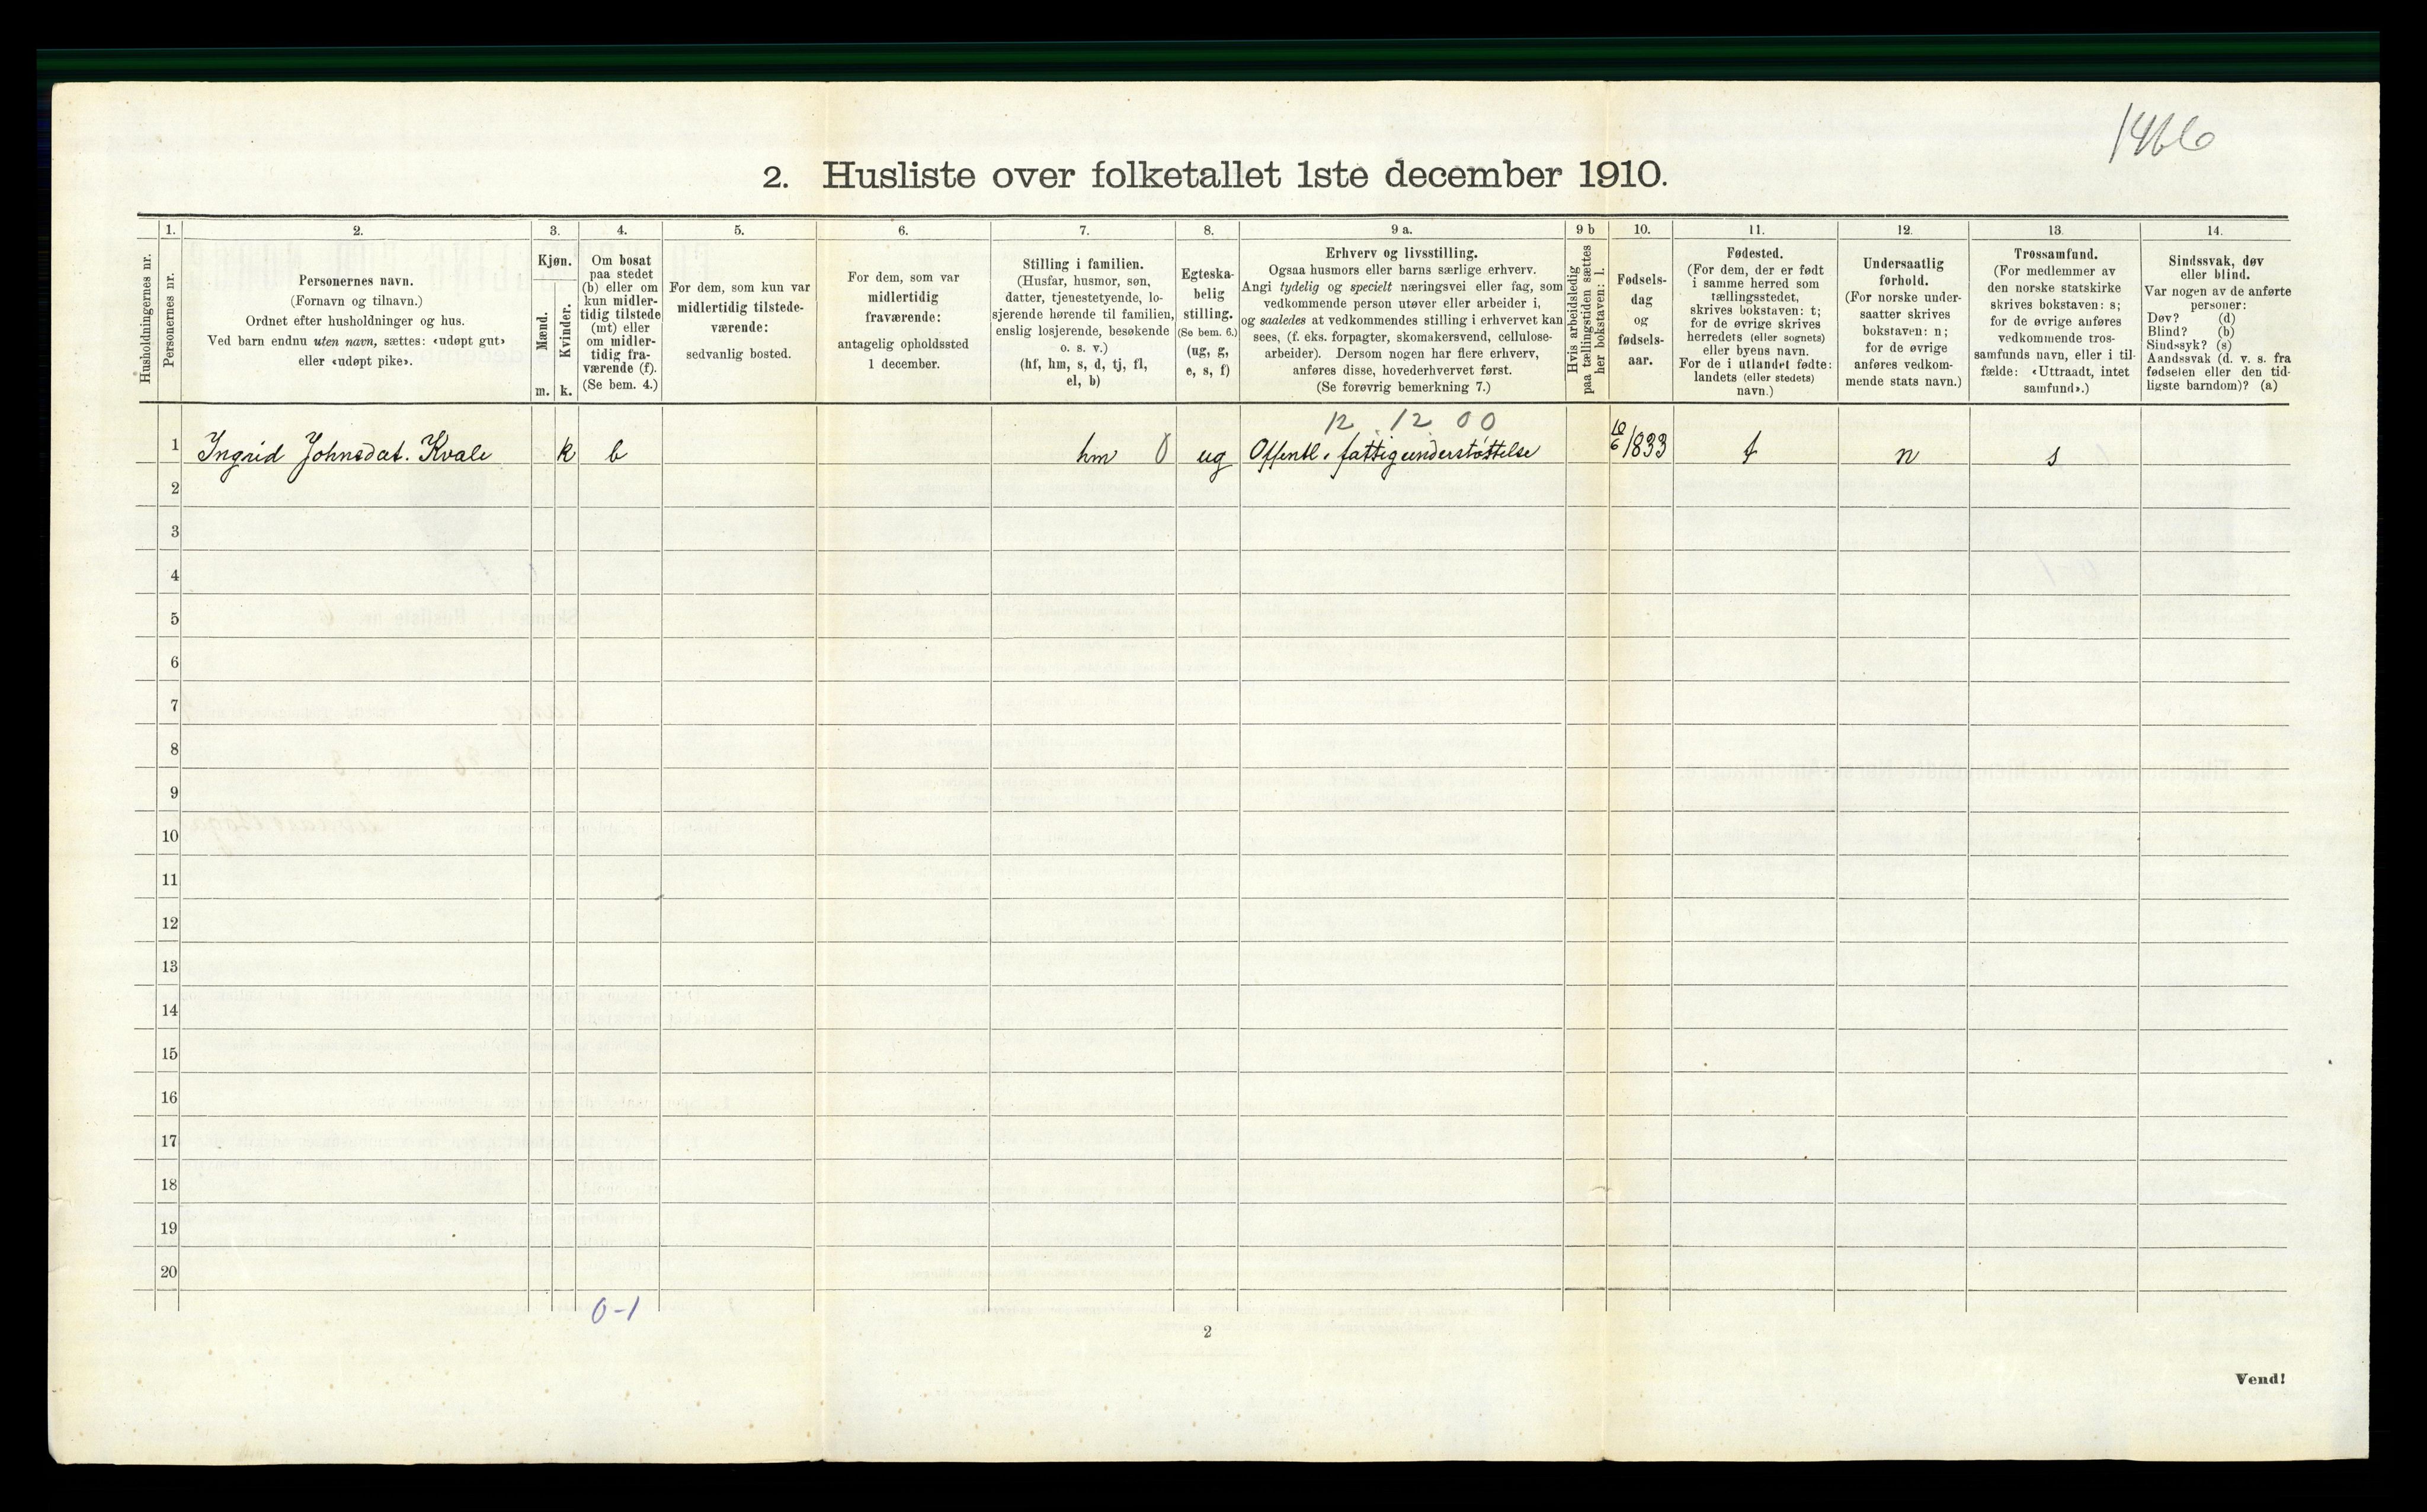 1466
2. Husliste over folketallet 1ste december 1910.
Husholdningernes nr.
1.
Personernes nr.
2.
Personernes navn.
(Fornavn og tilnavn.)
Ordnet efter husholdninger og hus.
Ved barn endnu uten navn, sættes: «udøpt gut»
eller «udøpt pike».
3.
Kjøn.
Mænd.
m.
Kvinder.
k.
4.
Om bosat
paa stedet
(b) eller om
kun midler-
tidig tilstede
(mt) eller
om midler-
tidig fra-
værende (f).
(Se bem. 4.)
5.
For dem, som kun var
midlertidig tilstede-
værende:
sedvanlig bosted.
6.
For dem, som var
midlertidig
fraværende:
antagelig opholdssted
1 december.
7.
Stilling i familien.
(Husfar, husmor, søn,
datter, tjenestetyende, lo-
sjerende hørende til familien,
enslig losjerende, besøkende
o. s. v.)
(hf, hm, s, d, tj, fl,
el, b)
8.
Egteska-
belig
stilling.
(Se bem. 6.)
(ug, g,
e, s, f)
9 a.
Erhverv og livsstilling.
Ogsaa husmors eller barns særlige erhverv.
Angi tydelig og specielt næringsvei eller fag, som
vedkommende person utøver eller arbeider i,
og saaledes at vedkommendes stilling i erhvervet kan
sees, (f. eks. forpagter, skomakersvend, cellulose-
arbeider). Dersom nogen har flere erhverv,
anføres disse, hovederhvervet først.
(Se forøvrig bemerkning 7.)
9 b
Hvis arbeidsledig
paa tællingstiden sættes
her bokstaven: l.
10.
Fødsels-
dag
og
fødsels-
aar.
11.
Fødested.
(For dem, der er født
i samme herred som
tællingsstedet,
skrives bokstaven: t;
for de øvrige skrives
herredets (eller sognets)
eller byens navn.
For de i utlandet fødte:
landets (eller stedets)
navn.)
12.
Undersaatlig
forhold.
(For norske under-
saatter skrives
bokstaven: n;
for de øvrige
anføres vedkom-
mende stats navn.)
13.
Trossamfund.
(For medlemmer av
den norske statskirke
skrives bokstaven: s;
for de øvrige anføres
vedkommende tros-
samfunds navn, eller i til-
fælde: «Uttraadt, intet
samfund».)
14.
Sindssvak, døv
eller blind.
Var nogen av de anførte
personer:
Døv? (d)
Blind? (b)
Sindssyk? (s)
Aandssvak (d. v. s. fra
fødselen eller den tid-
ligste barndom)? (a)
12 . 12 00
1 Ingrid Johnsdat. Kvale k b hm 0 ug Offentl. fattigunderstøttelse 10/6 1833 t n s
2
3
4
5
6
7
8
9
10
11
12
13
14
15
16
17
18
19
20
0-1
2
Vend!